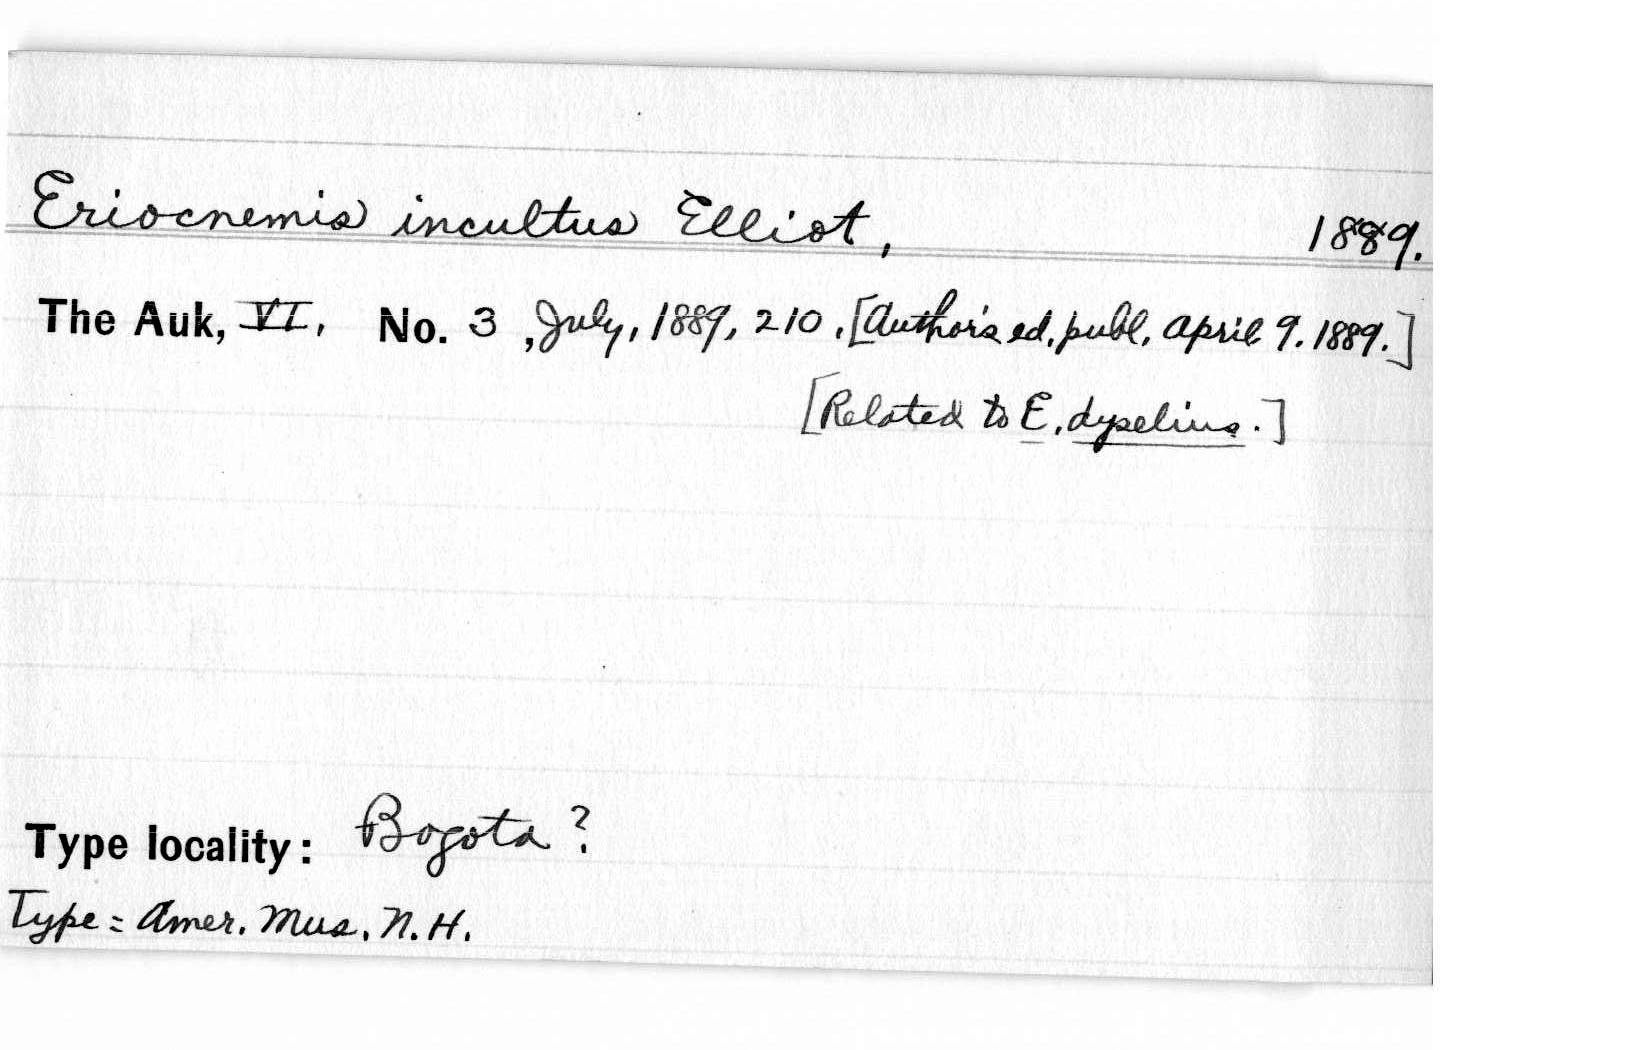 Eriocnemis incultus Elliot, 1889.
The Auk, VI, No. 3, July, 1889, 210. [Author's ed. publ. April 9. 1889.]
[Related to E. dyselius.]
Type locality: Bogota?
Type = Amer. Mus. N. H.